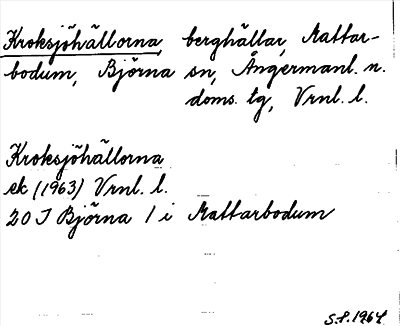 Kroksjöhällorna, berghällar, Mattar-
bodum, Björna sn, Ångermanl. n.
doms. tg, Vrnl. l.
Kroksjöhällorna
ek (1963) Vrnl. l.
20 J Björna 1 i Mattarbodum
S.P. 1964